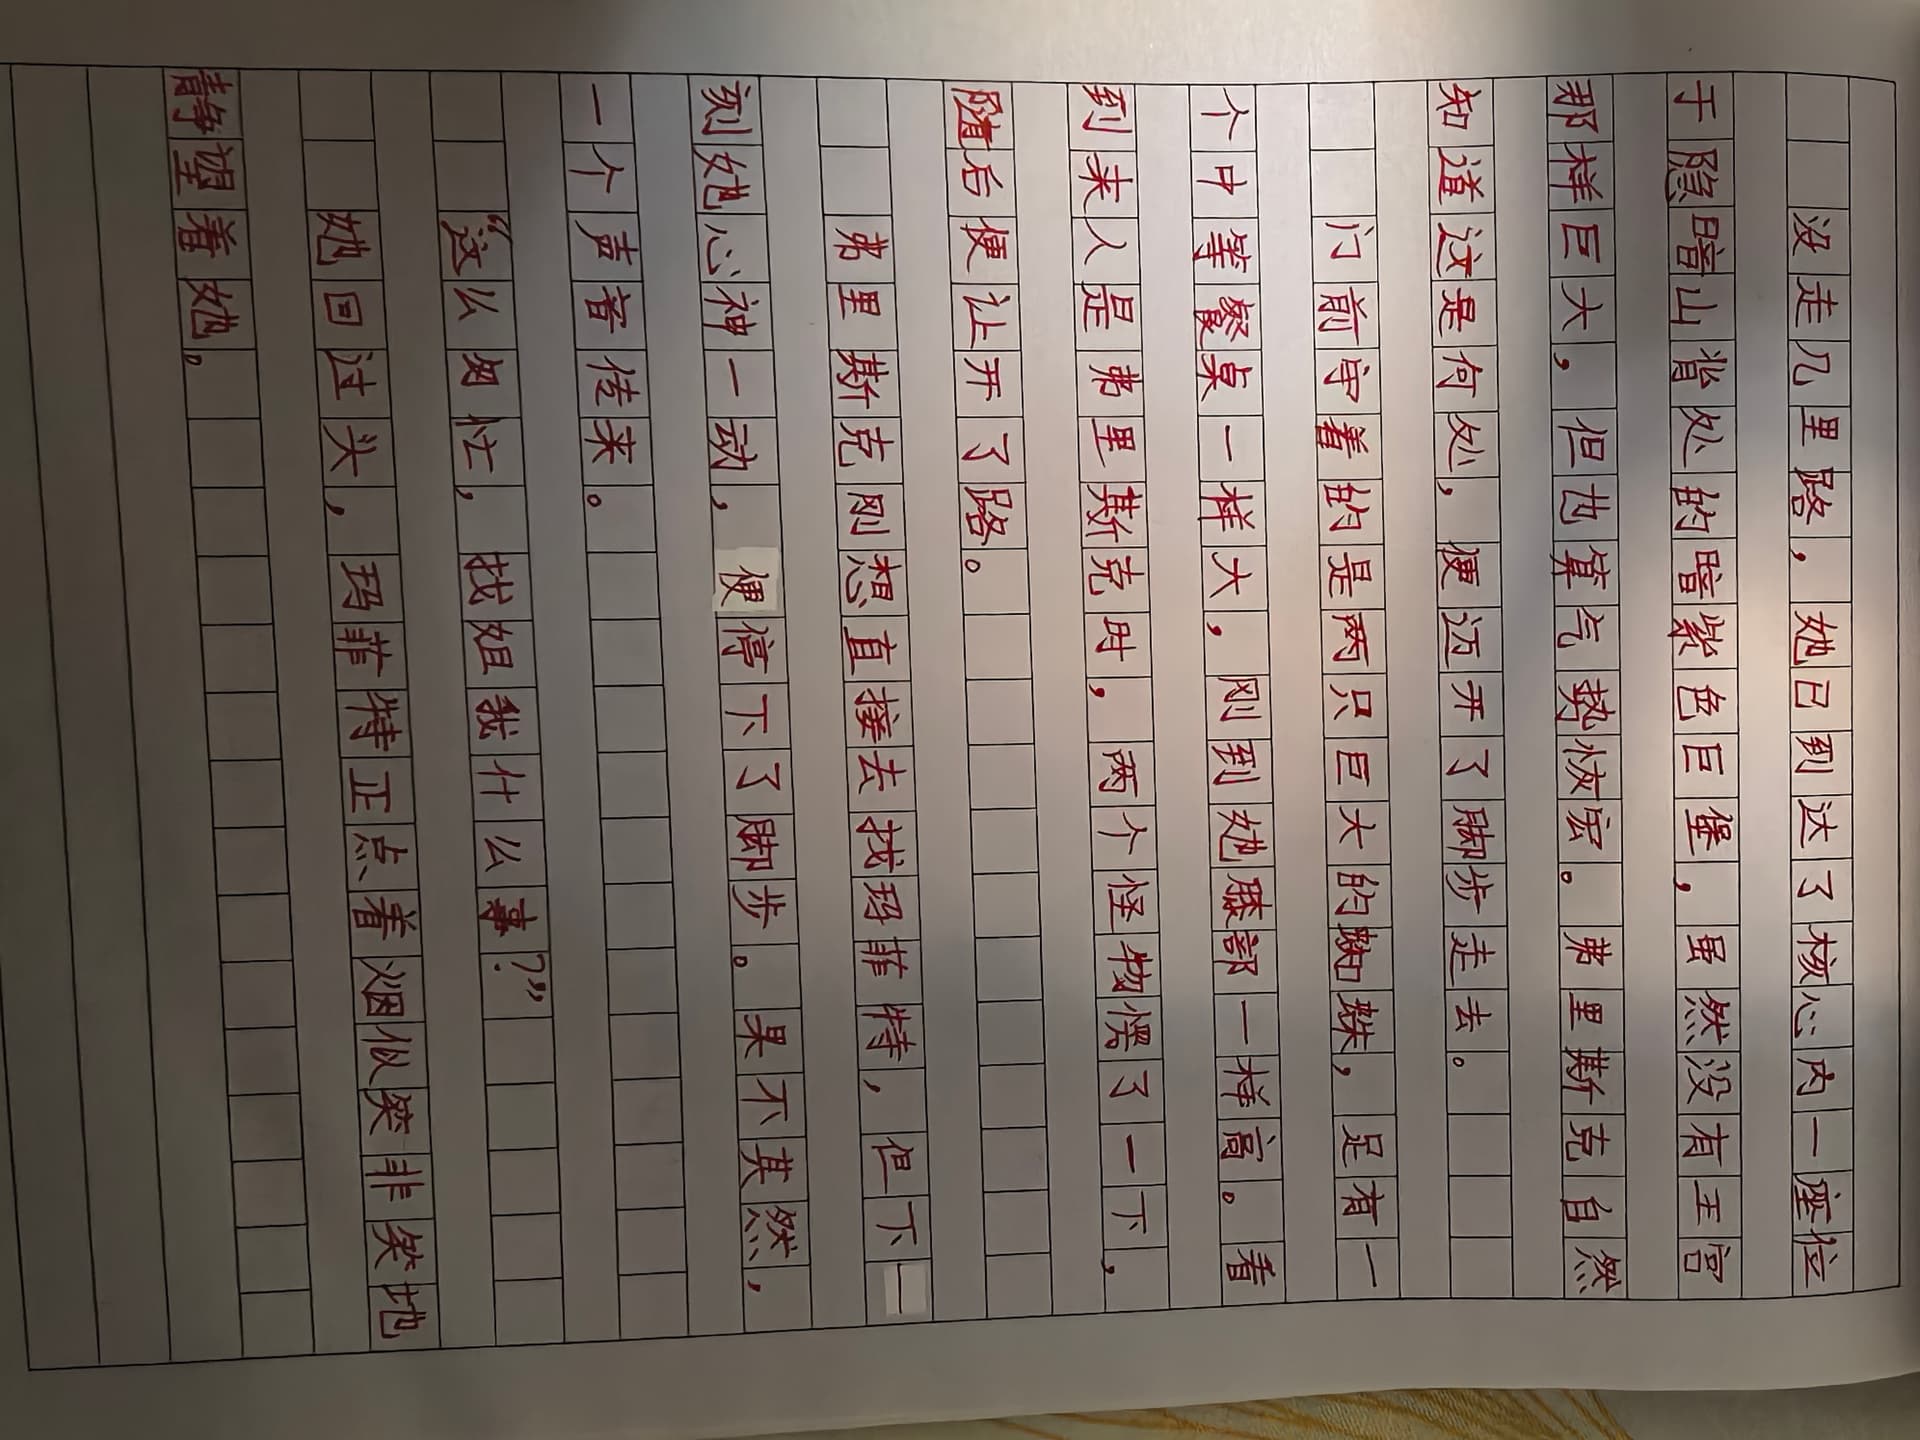 没走几里路，她已到达了核心内一座位
于隐暗山谐处的暗紫色巨堡，虽然没有王宫
那样巨大，但也算气势恢宏。弗里斯克自然
知道这是何处，便迈开了脚步走去。
门前守着的是两只巨大的蜘蛛，足有一
个中等餐桌一样大，刚到她膝部一样高。看
到来人是弗里斯克时，两个怪物愣了一下，
随后便让开了路。
弗里斯克刚想直接去找玛菲特，但下一
刻她心神一动，便停下了脚步。果不其然，
一个声音传来。
“这么匆忙，找姐我什么事？”
她回过头，玛菲特正点着烟似笑非笑地
静望着她。